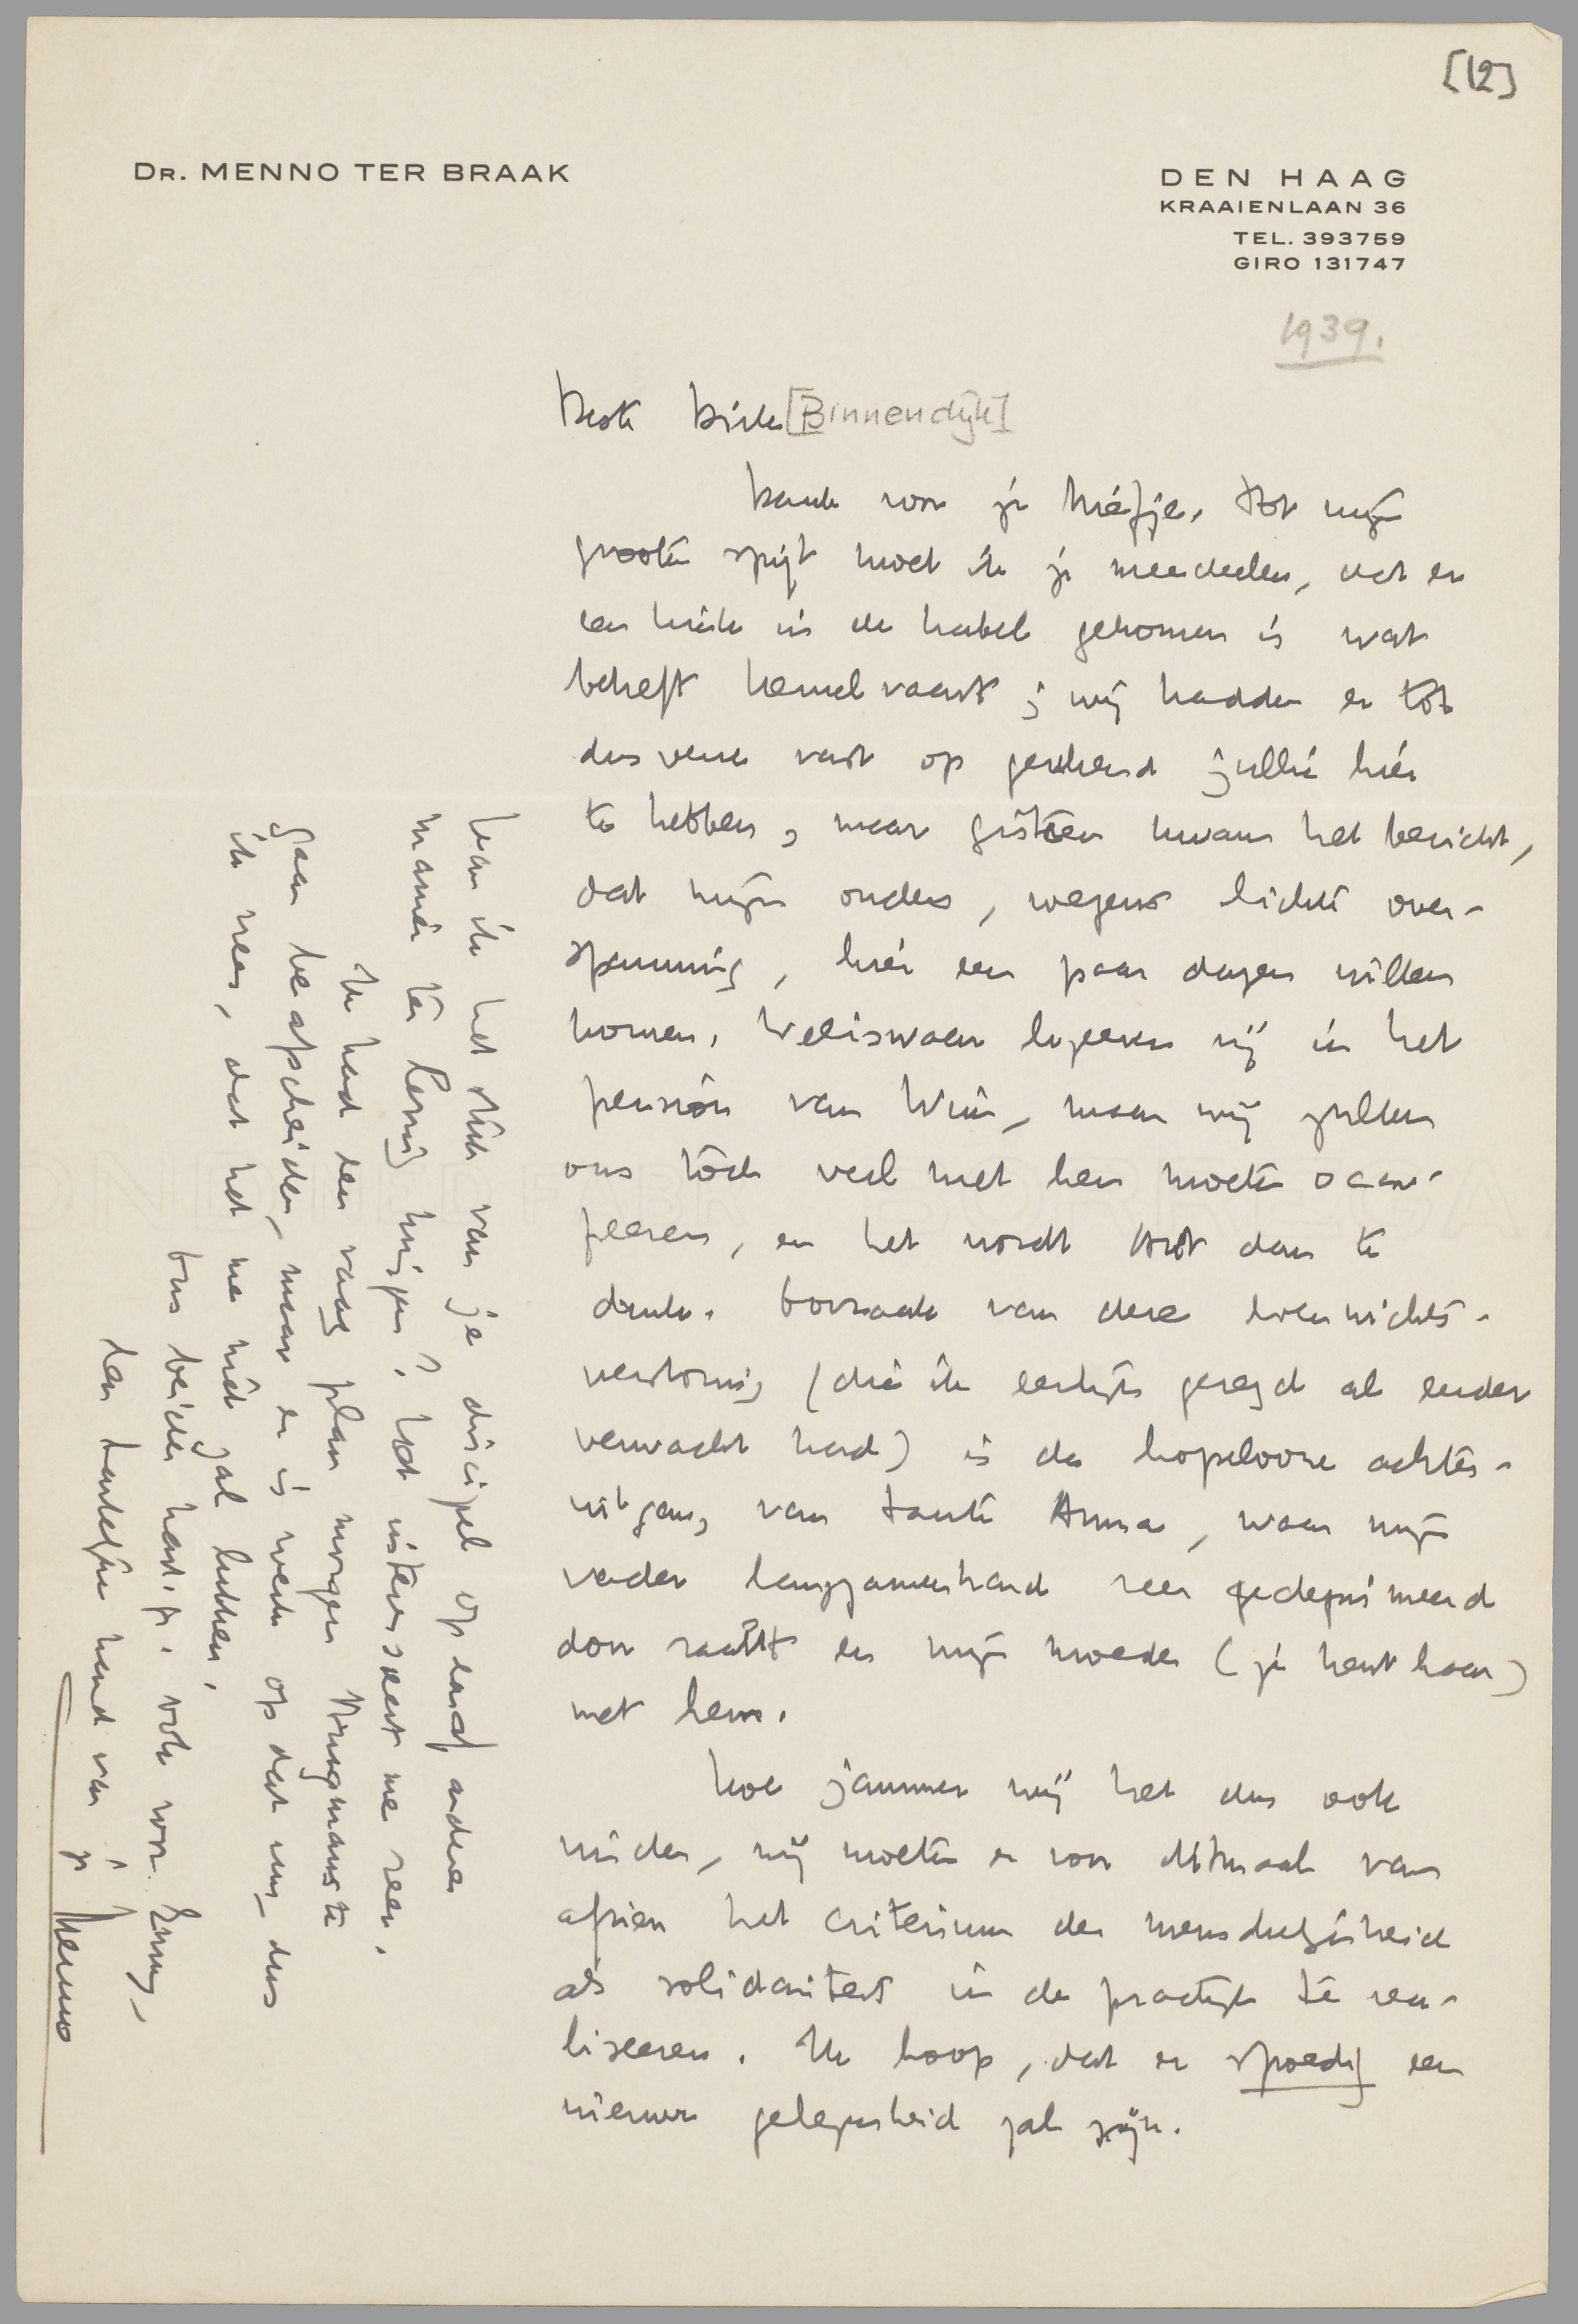 [12]
DR. MENNO TER BRAAK
DEN HAAG
KRAAIENLAAN 36
TEL. 393759
GIRO 131747
1939.
Beste Dick [Binnendijk]
Dank voor je briefje. Tot mijn
grooten spijt moet ik je meedeelen, dat er
een kink in de kabel gekomen is wat
betreft hemelvaart; wij hadden er tot
dusverre vast op gerekend jullie hier
te hebben, maar gisteren kwam het bericht,
dat mijn ouders, wegens lichte over-
spanning, hier een paar dagen willen
komen. Weliswaar logeeren zij in het
pension van Wim, maar wij zullen
ons toch veel met hen moeten occu-
peeren, en het wordt dan te
druk. Oorzaak van deze evenwichts-
verstoring (die ik eerlijk gezegd al eerder
verwacht had) is de hopelooze achter-
uitgang van tante Anna, waar mijn
vader langzamerhand zeer gedeprimeerd
door raakt en mijn moeder (je kent haar)
met hem.
Hoe jammer wij het dus ook
vinden, wij moeten er voor ditmaal van
afzien het criterium der menschelijkheid
als solidariteit in de practijk te rea-
liseeren. Ik hoop, dat er spoedig een
nieuwe gelegenheid zal zijn.
Kan ik het stuk van je discipel op een of andere
manier ter lezing krijgen? Het interesseert me zeer.
Ik had een vaag plan morgen Brugmans te
gaan beapscheiden, maar er is werk op dat uur, dus
ik vrees, dat het me niet zal lukken.
Ons beider hart. gr. ook voor Enny,
een hartelijke hand van je
Menno